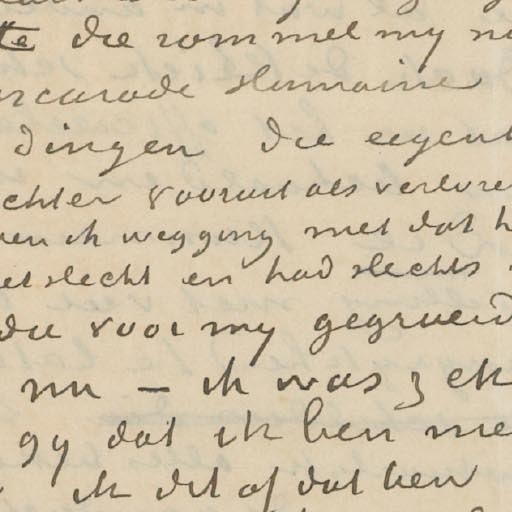 te die rommel my n
rcarade Humaine
dingen die eegent
chter vooruit als verlore
en ik wegging met dat h
et slecht en had slechts
die voor my gegrueid
nu — ik was zek
gy dat ik ben me
ik dit of dat ben